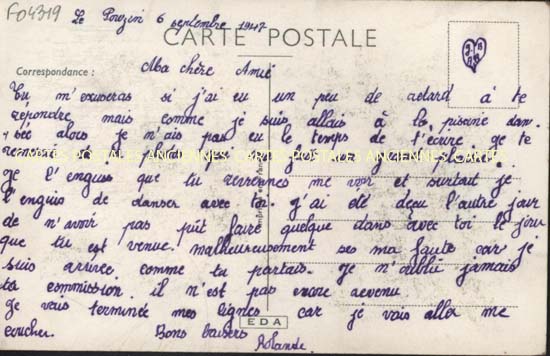 F04319
Le Pouzin 6 septembre 1947
CARTE POSTALE
Correspondance :
Ma chère Amie
Tu m'excuseras si j'ai eu un peu de retard à te
répondre mais comme je suis allais à la piscine dan
sée alors je n'ais pas eu le temps de t'écrire. je te
remercie
CARTES POSTALES ANCIENNES CARTES POSTALES ANCIENNES CARTE
je l'enguis que tu reviennes me voir et surtout je
l'enguis de danser avec toi. j'ai été deçu l'autre jour
de n'avoir pas pût faire quelque dans avec toi le jour
que tu est venue. malheureusement ses ma faute car je
suis arrivée comme tu partais. je n'oublie jamais
ta commission. il n'est pas encore revenu
je vais terminée mes lignes car je vais aller me
coucher. Bons baisers
Rolande
EDA